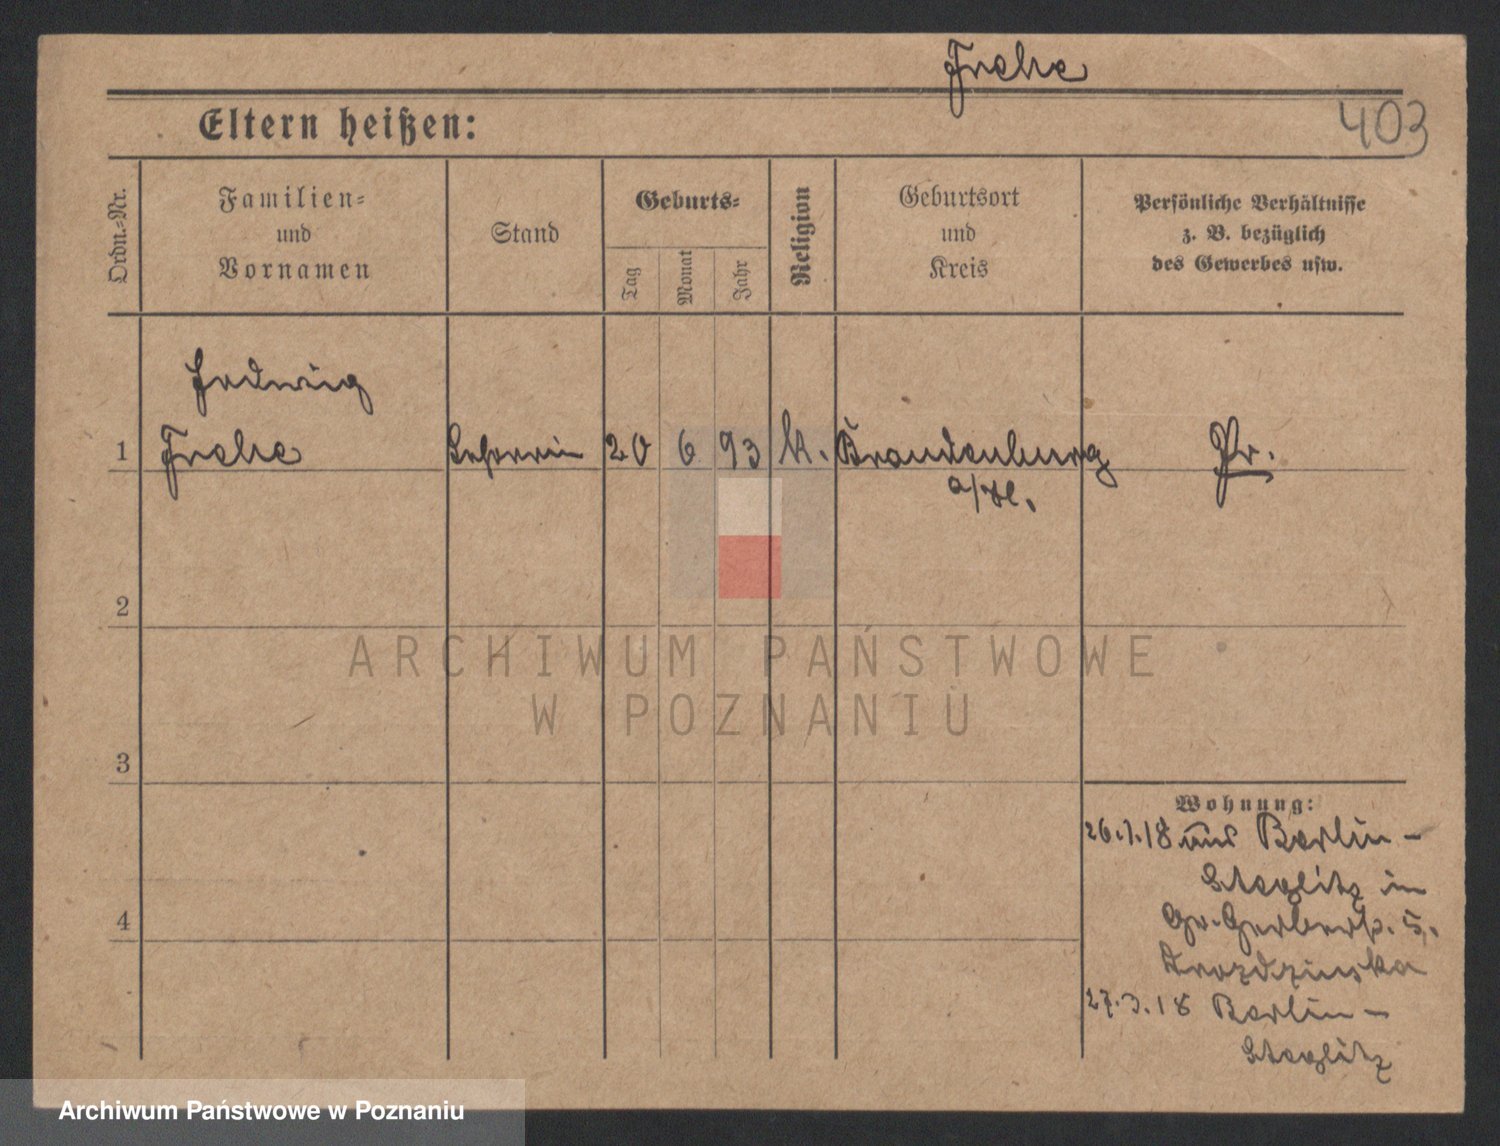 Frehe
403
Eltern heißen:
Ordn.-Nr.
Familien-
und
Vornamen
Stand
Geburts-
Tag
Monat
Jahr
Religion
Geburtsort
und
Kreis
Persönliche Verhältnisse
z. B. bezüglich
des Gewerbes usw.
Hedwig
1 Frehe Lehrerin 20 6 93 k. Brandenburg Pr.
a/H.
2
3
4
ARCHIWUM PAŃSTWOWE
W POZNANIU
Wohnung:
26.1.18 aus Berlin-
Steglitz in
Gr. Gerberstr. 5.
Drozdzinska
27.3.18 Berlin-
Steglitz
Archiwum Państwowe w Poznaniu